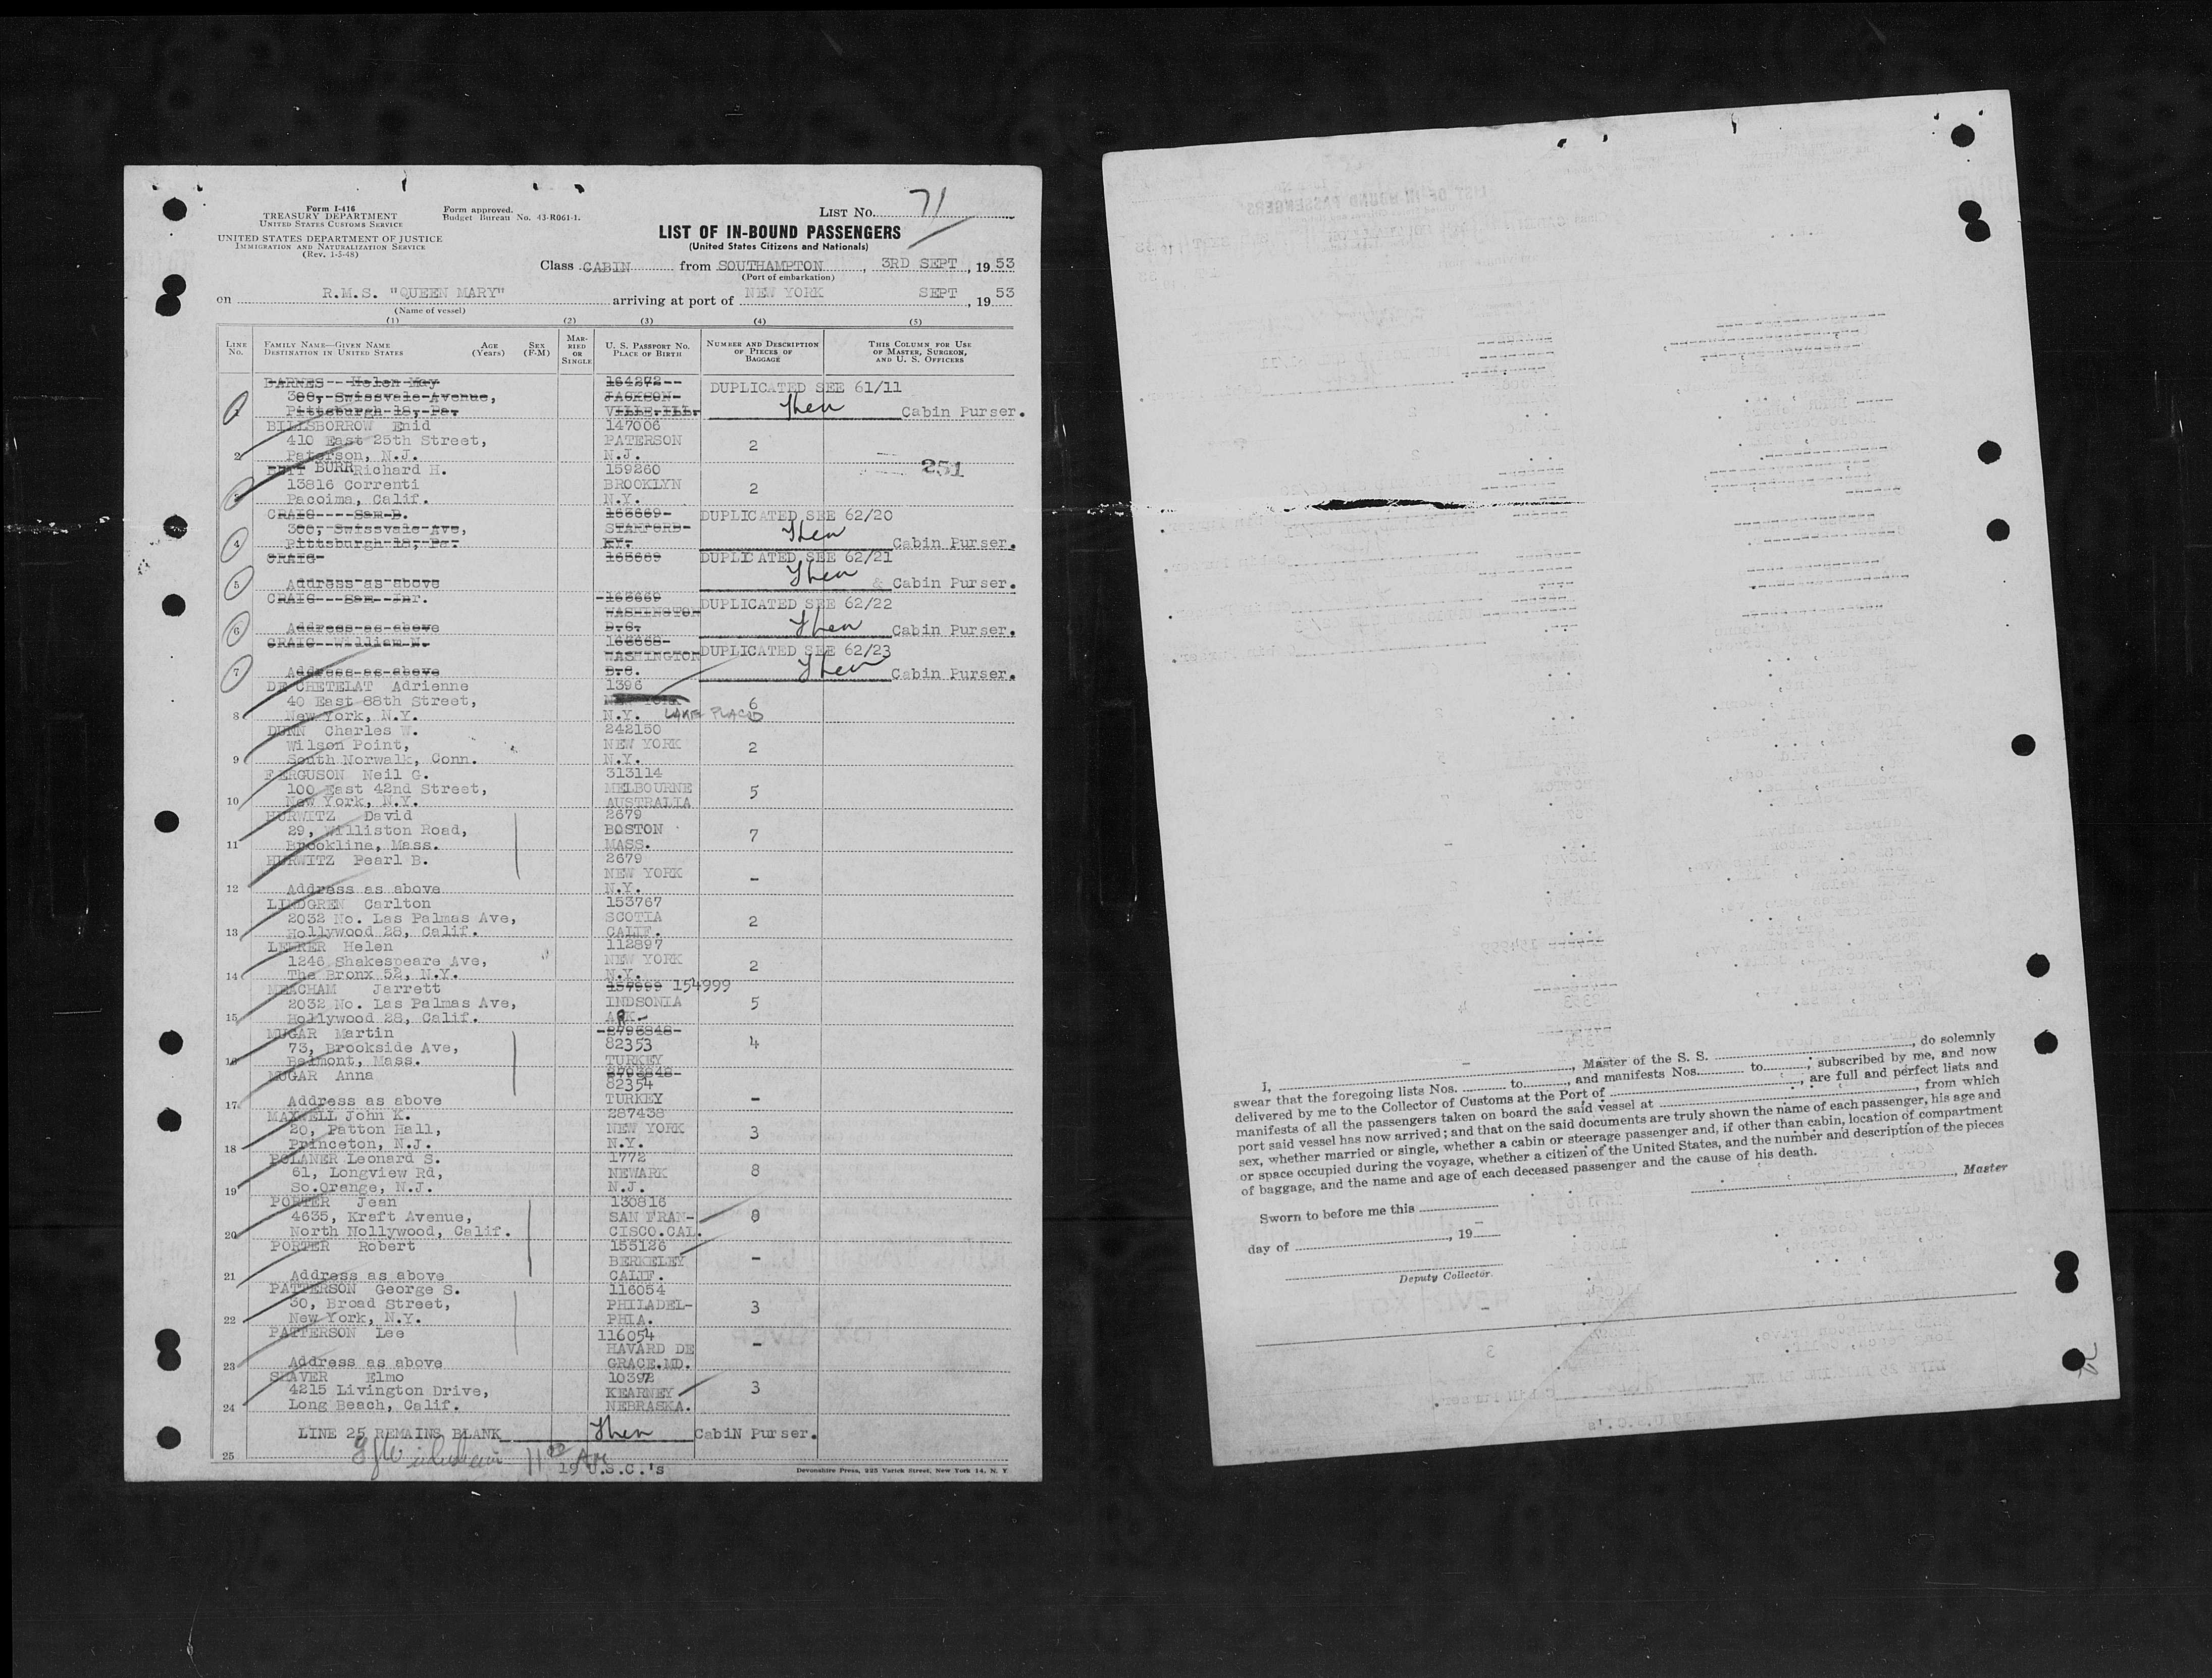 Form I-416
TREASURY DEPARTMENT
UNITED STATES CUSTOMS SERVICE
UNITED STATES DEPARTMENT OF JUSTICE
IMMIGRATION AND NATURALIZATION SERVICE
(Rev. 1-5-48)
Form approved.
Budget Bureau No. 43-R061-1.
LIST No. 71
LIST OF IN-BOUND PASSENGERS
(United States Citizens and Nationals)
Class CABIN from SOUTHAMPTON, 3RD SEPT, 1953
(Port of embarkation)
on R.M.S. "QUEEN MARY" arriving at port of NEW YORK SEPT, 1953
(Name of vessel)
(1) (2) (3) (4) (5)
LINE No. FAMILY NAME—GIVEN NAME DESTINATION IN UNITED STATES AGE (Years) SEX (F-M) MARRIED OR SINGLE U. S. PASSPORT No. PLACE OF BIRTH NUMBER AND DESCRIPTION OF PIECES OF BAGGAGE THIS COLUMN FOR USE OF MASTER, SURGEON, AND U. S. OFFICERS
BARNES--Helen May 164272--
300,-Swissvale-Avenue, JACKSON- DUPLICATED SEE 61/11
1 Pittsburgh-18,-Pa. VILLE.ILL. Cabin Purser.
BILLSBORROW Enid 147006
410 East 25th Street, PATERSON 2
2 Paterson, N.J. N.J.
BURR Richard H. 159260 251
13816 Correnti BROOKLYN 2
3 Pacoima, Calif. N.Y.
CRAIG----Sam-B. 163669- DUPLICATED SEE 62/20
300,-Swissvale-Ave, STANFORD-
4 Pittsburgh-18,-Pa. KY. Cabin Purser.
CRAIG- 163669 DUPLICATED SEE 62/21
5 Address-as-above & Cabin Purser.
CRAIG---Sam--Jnr. -163669 DUPLICATED SEE 62/22
WASHINGTON
6 Address-as-above D.C. Cabin Purser.
CRAIG--William-N. 163668- DUPLICATED SEE 62/23
WASHINGTON
7 Address-as-above D.C. Cabin Purser.
DE CHETELAT Adrienne 1396
40 East 88th Street, NEW YORK 6
8 New York, N.Y. N.Y. LAKE PLACID
DUNN Charles W. 242150
Wilson Point, NEW YORK 2
9 South Norwalk, Conn. N.Y.
FERGUSON Neil G. 313114
100 East 42nd Street, MELBOURNE 5
10 New York, N.Y. AUSTRALIA
HURWITZ David 2679
29, Williston Road, BOSTON 7
11 Brookline, Mass. MASS.
HURWITZ Pearl B. 2679
NEW YORK -
12 Address as above N.Y.
LINDGREN Carlton 153767
2032 No. Las Palmas Ave, SCOTIA 2
13 Hollywood 28, Calif. CALIF.
LEHRER Helen 112897
1246 Shakespeare Ave, NEW YORK 2
14 The Bronx 52, N.Y. N.Y.
MEACHAM Jarrett 157999 154999
2032 No. Las Palmas Ave, INDSONIA 5
15 Hollywood 28, Calif. ARK-
MUGAR Martin -2793848-
73, Brookside Ave, 82353 4
16 Belmont, Mass. TURKEY
MUGAR Anna 2793848-
82354
17 Address as above TURKEY -
MAXWELL John K. 287438
20, Patton Hall, NEW YORK 3
18 Princeton, N.J. N.Y.
POLANER Leonard S. 1772
61, Longview Rd, NEWARK 8
19 So.Orange, N.J. N.J.
PORTER Jean 130816
4635, Kraft Avenue, SAN FRAN- 8
20 North Hollywood, Calif. CISCO.CAL.
PORTER Robert 155126
BERKELEY -
21 Address as above CALIF.
PATTERSON George S. 116054
30, Broad Street, PHILADEL- 3
22 New York, N.Y. PHIA.
PATTERSON Lee 116054
HAVARD DE -
23 Address as above GRACE.MD.
SHAVER Elmo 10392
4215 Livington Drive, KEARNEY 3
24 Long Beach, Calif. NEBRASKA.
LINE 25 REMAINS BLANK CabiN Purser.
25 11 00 AM
19 U.S.C.'s
Devonshire Press, 225 Varick Street, New York 14, N. Y.
I, ..., Master of the S. S. ..., do solemnly
swear that the foregoing lists Nos. ... to ..., and manifests Nos. ... to ..., subscribed by me, and now
delivered by me to the Collector of Customs at the Port of ..., are full and perfect lists and
manifests of all the passengers taken on board the said vessel at ..., from which
port said vessel has now arrived; and that on the said documents are truly shown the name of each passenger, his age and
sex, whether married or single, whether a cabin or steerage passenger and, if other than cabin, location of compartment
or space occupied during the voyage, whether a citizen of the United States, and the number and description of the pieces
of baggage, and the name and age of each deceased passenger and the cause of his death.
..., Master
Sworn to before me this ...
day of ..., 19...
Deputy Collector.